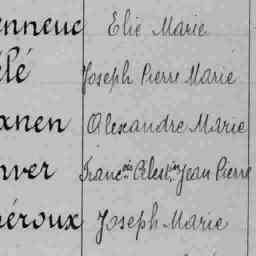 enneuc Elie Marie
élé Joseph Pierre Marie
anen Alexandre Marie
nver Franc.ois Célest.in Jean Pierre
éroux Joseph Marie